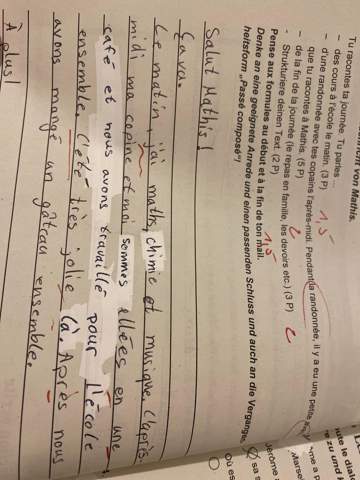 von Mathis.
Tu racontes ta journée. Tu parles
– des cours à l'école le matin. (3 P)
1,5
– d'une randonnée avec tes copains l'après-midi. Pendant la randonnée, il y a eu une petite
que tu racontes à Mathis. (5 P)
2
– de la fin de la journée (le repas en famille, les devoirs etc.) (3 P)
2
- Strukturiere deinen Text. (2 P)
1,5
Pense aux formules au début et à la fin de ton mail.
Denke an eine geeignete Anrede und einen passenden Schluss und auch an die Vergangen-
heitsform „Passé composé"!
Salut Mathis!
Ça va.
Le matin, j'ai math, chimie et musique. L'après
midi ma copine et moi sommes allées en une
café et nous avons travaillé pour l'école
ensemble. C'été très jolie là. Après nous
avons mangé un gâteau ensemble.
À plus
Jérôme
Où es